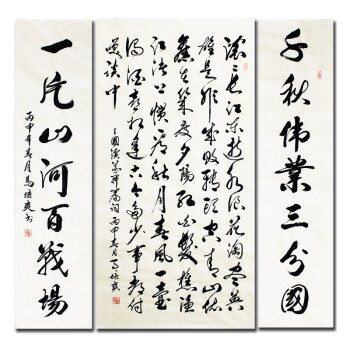 千秋伟業三分國
滚滚長江东逝水浪花淘尽英
雄是非成败转头空青山依
旧在幾度夕陽红白髮樵漁
江渚上惯看秋月春風一壶
浊酒喜相逢古今多少事都付
笑谈中
三國演义开篇词丙申春月
一片山河百戰場
丙申年春月馬